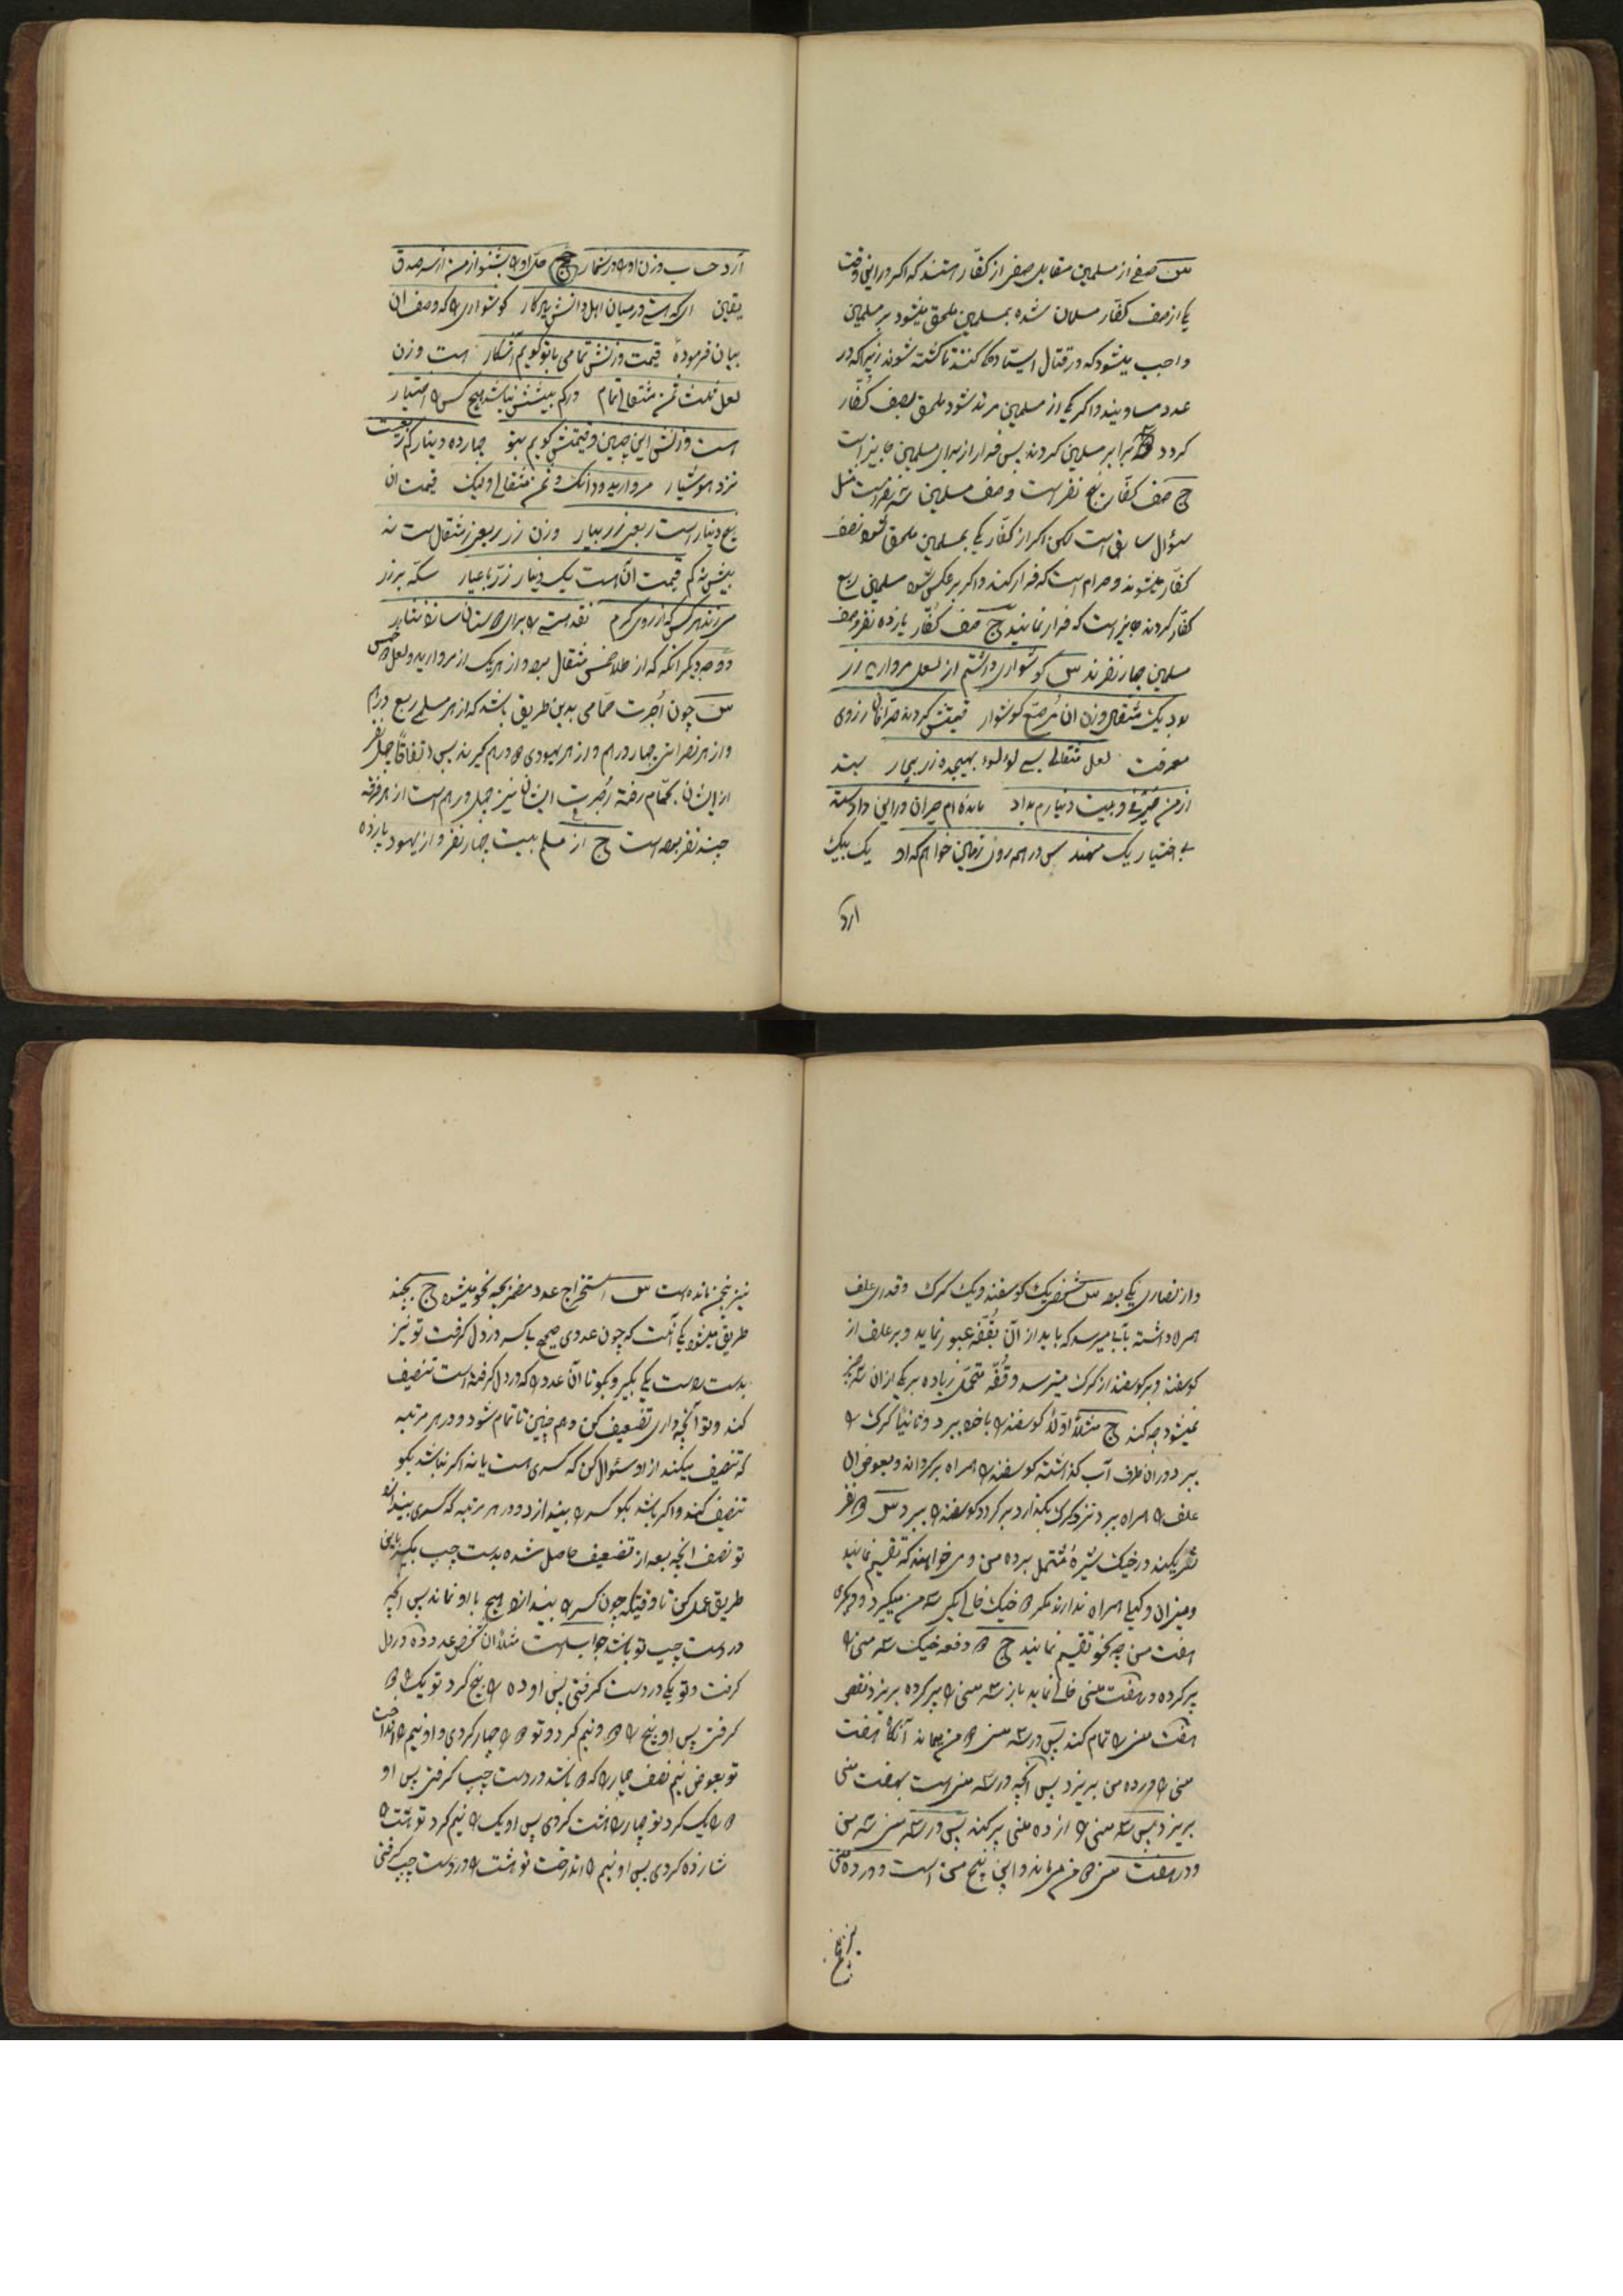 س صفی از مسلمین مقابل صفی از کفّار استند که اکر در این وقت
یکی از صف کفّار مسلمان شده بمسلمین ملحق میشود بر مسلمین
واجب میشود که در قتال ایستادگی کنند تا کشته شوند زیرا که در
عدد مساویند و اکر یکی از مسلمین مرتد شود ملحق بصف کفّار
کردد برابر مسلمین کردند پس فرار از برای مسلمین جایز است
ج صف کفّار پنج نفر است و صف مسلمین سه نفر است مثل
سؤال سابق است لکن اکر از کفّار یکی بمسلمین ملحق شود نصف
کفّار میشوند و حرام است که فرار کنند و اکر بر عکس شود مسلمین ربع
کفّار کردند جایز است که فرار نمایند ج صف کفّار یازده نفر و صف
مسلمین چهار نفرند س کوشواری داشتم از لعل مروارید زر
بود یک مثقال وزن ان مرصّع کوشوار قیمتش کردند صرّافان ز روی
معرفت لعل مثقالی بسی لؤلؤ بهیجده زر بچار بستد
از من خیرئی و بیست دینارم بداد مانده‌ام حیران در این داد و ستد
بی اختیار یک مهند س در همه روی زمین خواهم که او یک بیک
ارد
ارد حساب وزن او را در شمار ج حلّ او را بشنو از من از سر صدق
یقین ای که هستی در میان اهل دانش یادکار کوشواری را که وصف ان
بیان فرمودهٔ قیمت وزنش تمامی با تو کویم آشکار هست وزن
لعل ثلث ثمن مثقالی تمام در کم بیشش نباشد هیچ کس را اختیار
است وزنش این چنین و قیمتش کویم بتو چهارده دینار کم ربعست
نزد هوشیار مروارید دودانک و ثمن مثقالی ولیک قیمت ان
پنج دینار است ربعی زر بیار وزن زر ربعی ز مثقال است نه
بیش نه کم قیمت آن هست یک دینار زرّ با عیار سکّه بر زر
می‌زند هر کس که از روی کرم نقد هستی را برای دوستان سازد نثار
و وجه دیکر انکه که از طلا خمس مثقال بود و از هر یک از مروارید و لعل دو خمس
س چون اُجرت حمّامی بدین طریق باشد که از هر مسلمی ربع درهم
و از هر نصرانی چهار درهم و از هر یهودی دو درهم کیرند پس اتفاقاً چهل نفر
از ایشان بحمّام رفته اُجرت ایشان نیز چهل درهم است از هر فرقه
چند نفر بوده است ج از مسلم بیست چهار نفر و از یهود پانزده
و از نصاری یکی بود س شخصی یک کوسفند و یک کرک و قدری علف
همراه داشته بآبی میرسد که باید از آن بقفّه عبور نماید و بر علف از
کوسفند و بر کوسفند از کرک میترسد و قفّه متحمّل زیاده بر یکی از ان سه چیز
نمیشود چه کند ج مثلاً اوّلاً کوسفند را با خود ببرد و ثانیاً کرک را
ببرد در ان طرف آب کذاشته کوسفند را همراه برکرداند و بعوض ان
علف را همراه ببرد نزد کرک بکذارد برکردد کوسفند را ببرد س دو نفر
شریکند در خیک شیرهٔ مشتمل بر ده من و می‌خواهند که تقسیم نمایند
و میزان و کیلی همراه ندارند مکر دو خیک خالی یکی سه من میکیرد و دیکری
هفت من چه نحو تقسیم نمایند ج دو دفعه خیک سه منی را
پر کرده در هفت منی خالی نماید باز سه منی را پر کرده بریزد نقص
هفت منی را تمام کند پس در سه منی دو من بماند آنکاه هفت
منی را در ده من بریزد پس آنچه در سه منی است بهفت منی
بریزد پس سه منی را از ده منی پر کند پس در سه منی سه من
و در هفت منی دو من می‌ماند و این پنج من است و در ده منی
نیز پنج
نیز پنج من مانده است س استخراج عدد مضمر بچه نحو میشود ج بچند
طریق میشود یکی آنست که چون عددی صحیح یا کسر در دل کرفت تو نیز
بدست راست یکی بکیر و بکو تا آن عدد را که در دل کرفته است تنصیف
کند و تو آنچه داری تضعیف کن و همچنین تا تمام شود و در هر مرتبه
که تنصیف میکند از او سئوال کن که کسری هست یا نه اکر نباشد بکو
تنصیف کند و اکر باشد بکو کسر را بیندازد و در هر مرتبه که کسری بیندازد
تو نصف انچه بعد از تضعیف حاصل شده بدست چپ بکیر باین
طریق عمل کن تا وقتیکه چون کسر را بیندازد هیچ با او نماند پس انچه
در دست چپ تو باشد جواب است مثلاً ان شخص عدد ده در دل
کرفت و تو یکی در دست کرفتی پس او ده را پنج کرد تو یک را دو
کرفتی پس او پنج را دو و نیم کرد و تو دو را چهار کردی و او نیم را انداخت
تو بعوض نیم نصف چهار را که دو باشد در دست چپ کرفتی پس او
دو را یک کرد تو چهار را هشت کردی پس او یک را نیم کرد تو هشت را
شانزده کردی پس او نیم را انداخت تو هشت را در دست چپ کرفتی